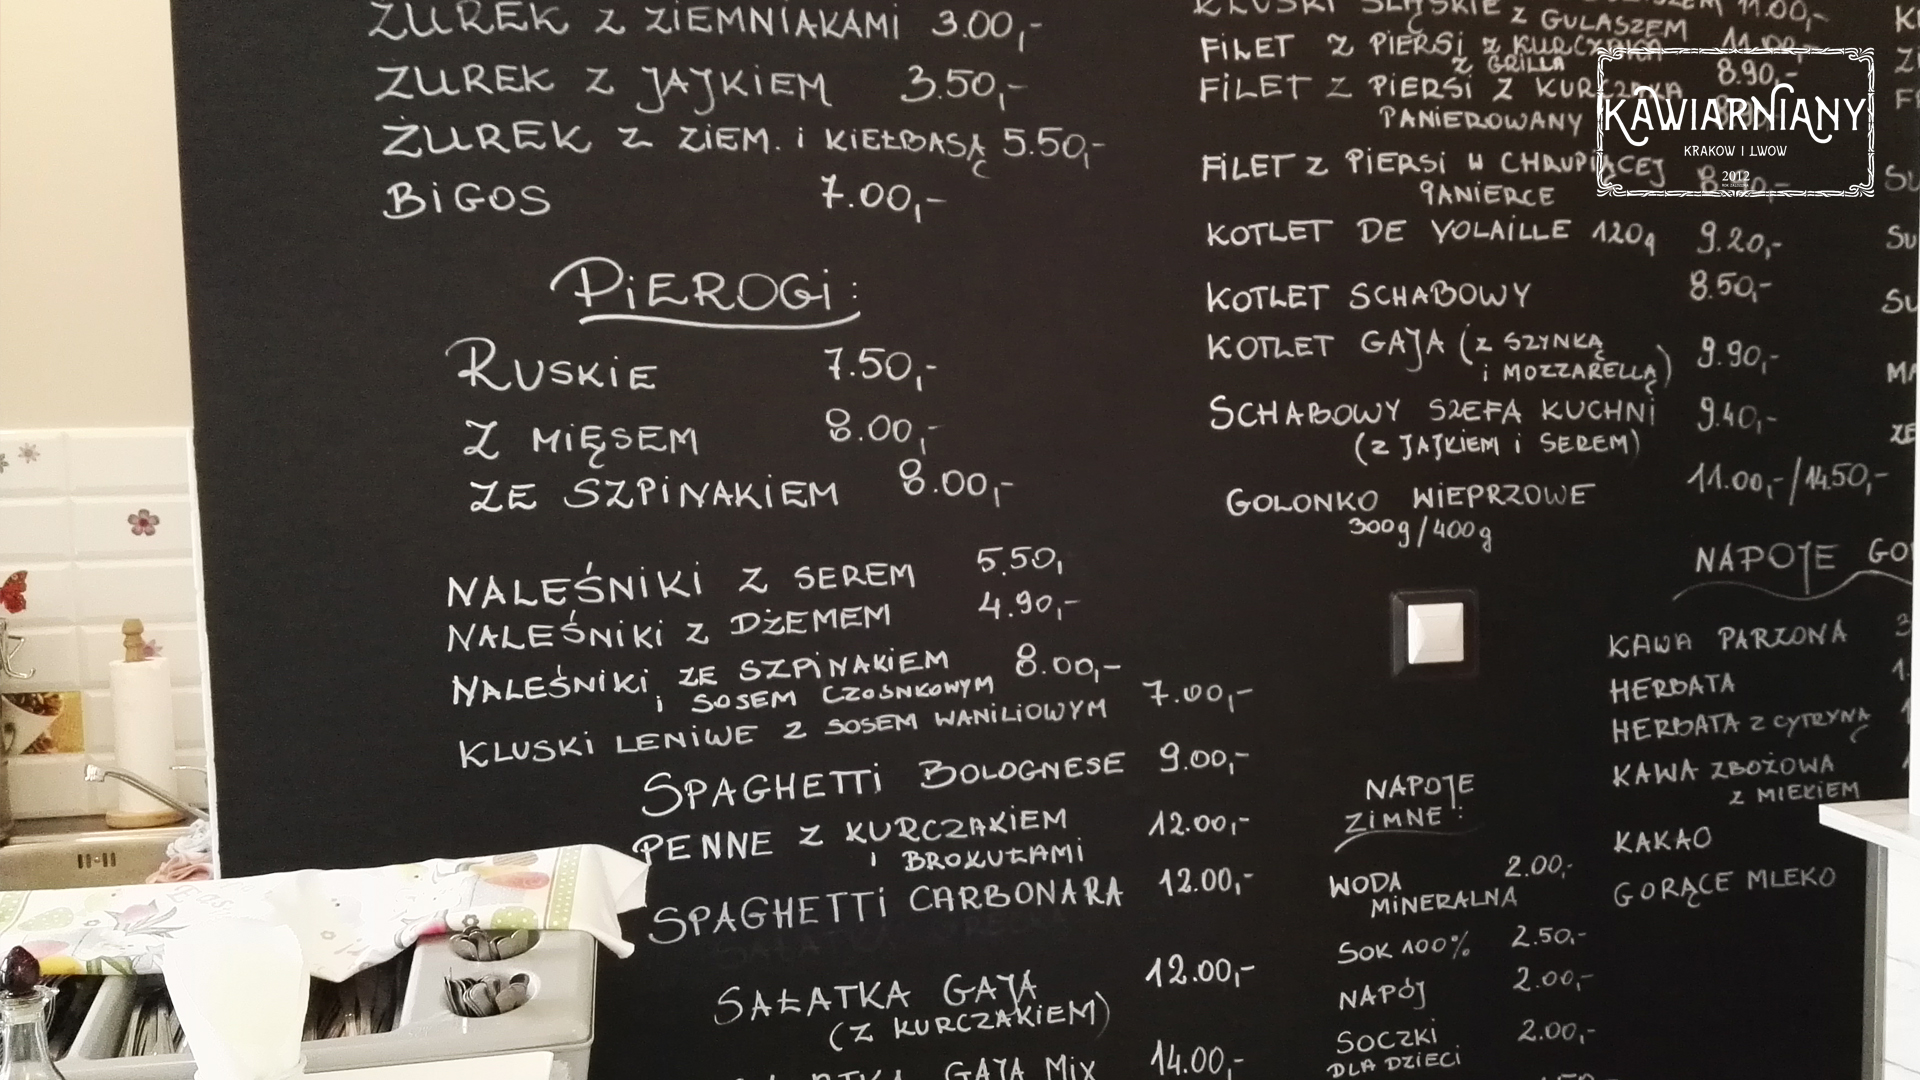 ŻUREK Z ZIEMNIAKAMI 3.00,-
ŻUREK Z JAJKIEM 3.50,-
ŻUREK Z ZIEM. I KIEŁBASĄ 5.50,-
BIGOS 7.00,-
PIEROGI:
RUSKIE 7.50,-
Z MIĘSEM 8.00,-
ZE SZPINAKIEM 8.00,-
NALEŚNIKI Z SEREM 5.50,
NALEŚNIKI Z DŻEMEM 4.90,-
NALEŚNIKI ZE SZPINAKIEM 8.00,-
I SOSEM CZOSNKOWYM
KLUSKI LENIWE Z SOSEM WANILIOWYM 7.00,-
SPAGHETTI BOLOGNESE 9.00,-
PENNE Z KURCZAKIEM 12.00,-
I BROKUŁAMI
SPAGHETTI CARBONARA 12.00,-
SAŁATKA GAJA 12.00,-
(Z KURCZAKIEM)
GAJA MIX 14.00,-
KLUSKI ŚLĄSKIE 11.00,-
Z GULASZEM
FILET Z PIERSI Z KURCZAKA
Z GRILLA 8.90,-
FILET Z PIERSI Z KURCZAKA
PANIEROWANY
FILET Z PIERSI W CHRUPIĄCEJ
PANIERCE
KOTLET DE VOLAILLE 120g 9.20,-
KOTLET SCHABOWY 8.50,-
KOTLET GAJA (Z SZYNKĄ 9.90,-
I MOZZARELLĄ)
SCHABOWY SZEFA KUCHNI 9.40,-
(Z JAJKIEM I SEREM)
GOLONKO WIEPRZOWE 11.00,-/14.50,-
300g/400g
NAPOJE
ZIMNE:
WODA 2.00,-
MINERALNA
SOK 100% 2.50,-
NAPÓJ 2.00,-
SOCZKI 2.00,-
DLA DZIECI
NAPOJE
KAWA PARZONA
HERBATA
HERBATA Z CYTRYNĄ
KAWA ZBOŻOWA
Z MLEKIEM
KAKAO
GORĄCE MLEKO
KAWIARNIANY
KRAKOW I LWOW
2012